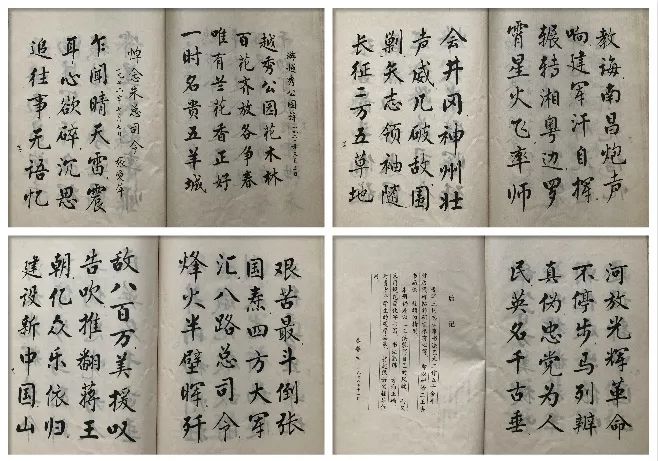 游越秀公园诗
越秀公园花木林
百花齐放各争春
唯有兰花香正好
一时名贵五羊城
悼念朱总司令
张爱萍
乍闻晴天雷震
耳心欲碎沉思
追往事无语忆
教诲南昌炮声
响建军汗自挥
辗转湘粤边罗
霄星火飞率师
会井冈神州壮
声威几破敌围
剿矢志领袖随
长征二万五草地
艰苦最斗倒张
国焘四方大军
汇八路总司令
烽火半壁晖歼
敌八百万美援叹
告吹推翻蒋王
朝亿众乐依归
建设新中国山
河放光辉革命
不停步马列辨
真伪忠党为人
民英名千古垂
后记